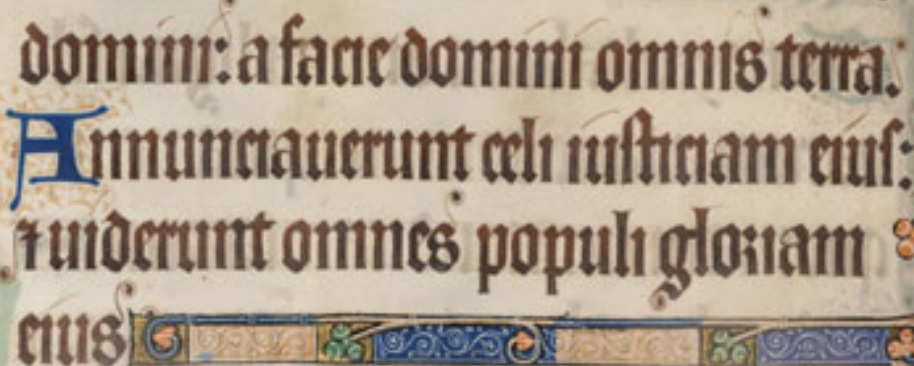 domini: a facie domini omnis terra.
Annunciauerunt celi iusticiam eius:
⁊ uiderunt omnes populi gloriam
eius